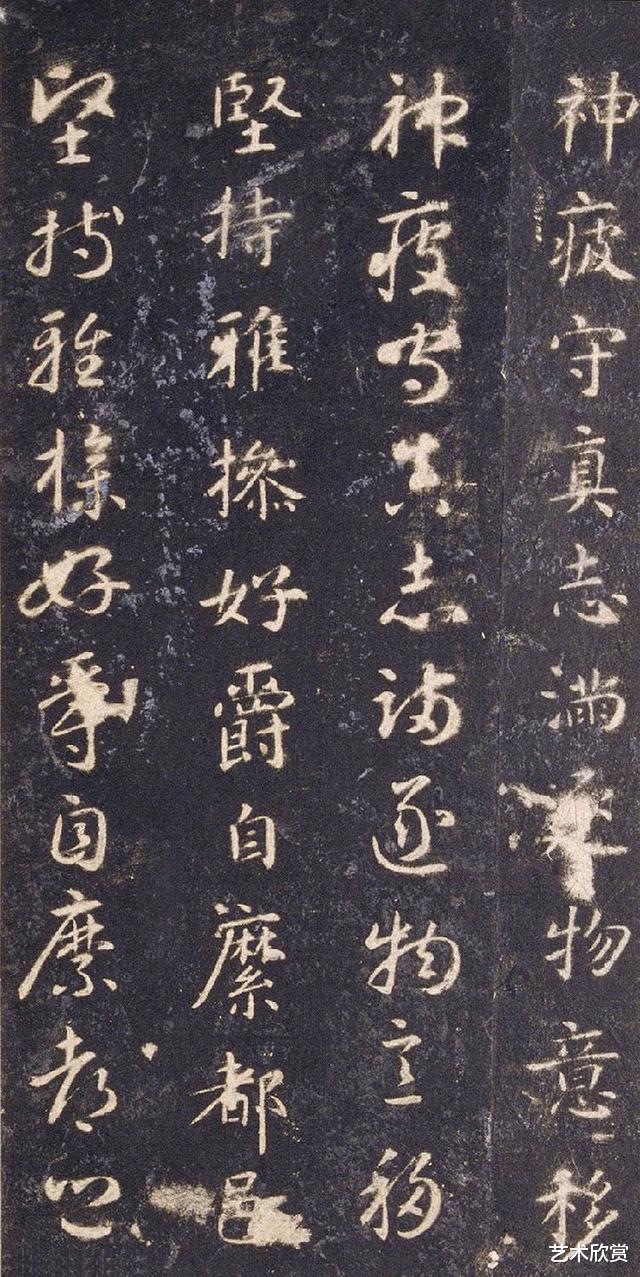 神疲守真志滿物意移
神疲守真志滿逐物意移
堅持雅操好爵自縻都邑
堅持雅操好爵自縻都邑
艺术欣赏